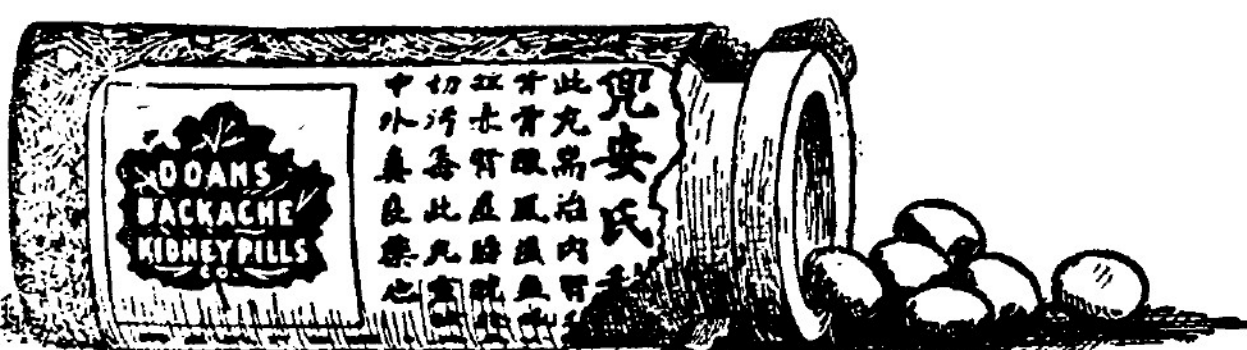 DOANS
BACKACHE
KIDNEY PILLS
CO.
兜安氏
此丸耑治內腎
背骨風濕血
赤腎虛膀胱
切污毒此丸實
中外真良藥也